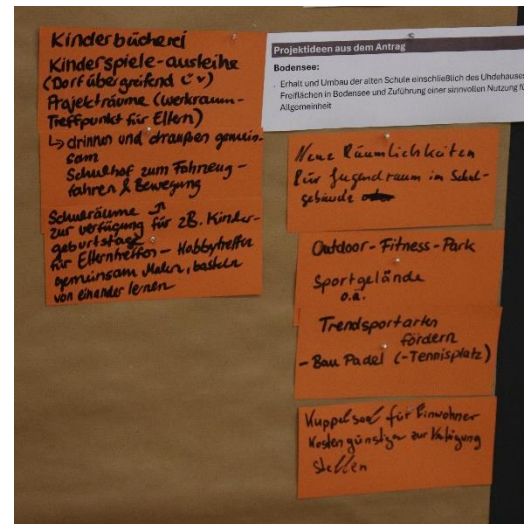 Kinderbücherei
Kinderspiele-ausleihe
(Dorfübergreifend
Projekträume (Werkraum-
Treffpunkt für Eltern)
↳ drinnen und draußen gemein-
sam
Schulhof zum Fahrzeug-
fahren & Bewegung
Schulräume
zur verfügung für zB. Kinder-
geburtstage
für Elterntreffen - Hobbytreffen
gemeinsam Malen, basteln
von einander lernen
Projektideen aus dem Antrag
Bodensee:
Erhalt und Umbau der alten Schule einschließlich des Uhdehauses
Freiflächen in Bodensee und Zuführung einer sinnvollen Nutzung fü
Allgemeinheit
Neue Räumlichkeiten
für Jugendraum im Schul-
gebäude
Outdoor-Fitness-Park
Sportgelände
o.ä.
Trendsportarten
fördern
- Bau Padel (-Tennisplatz)
Kuppelsaal für Einwohner
Kostengünstiger zur Verfügung
stellen